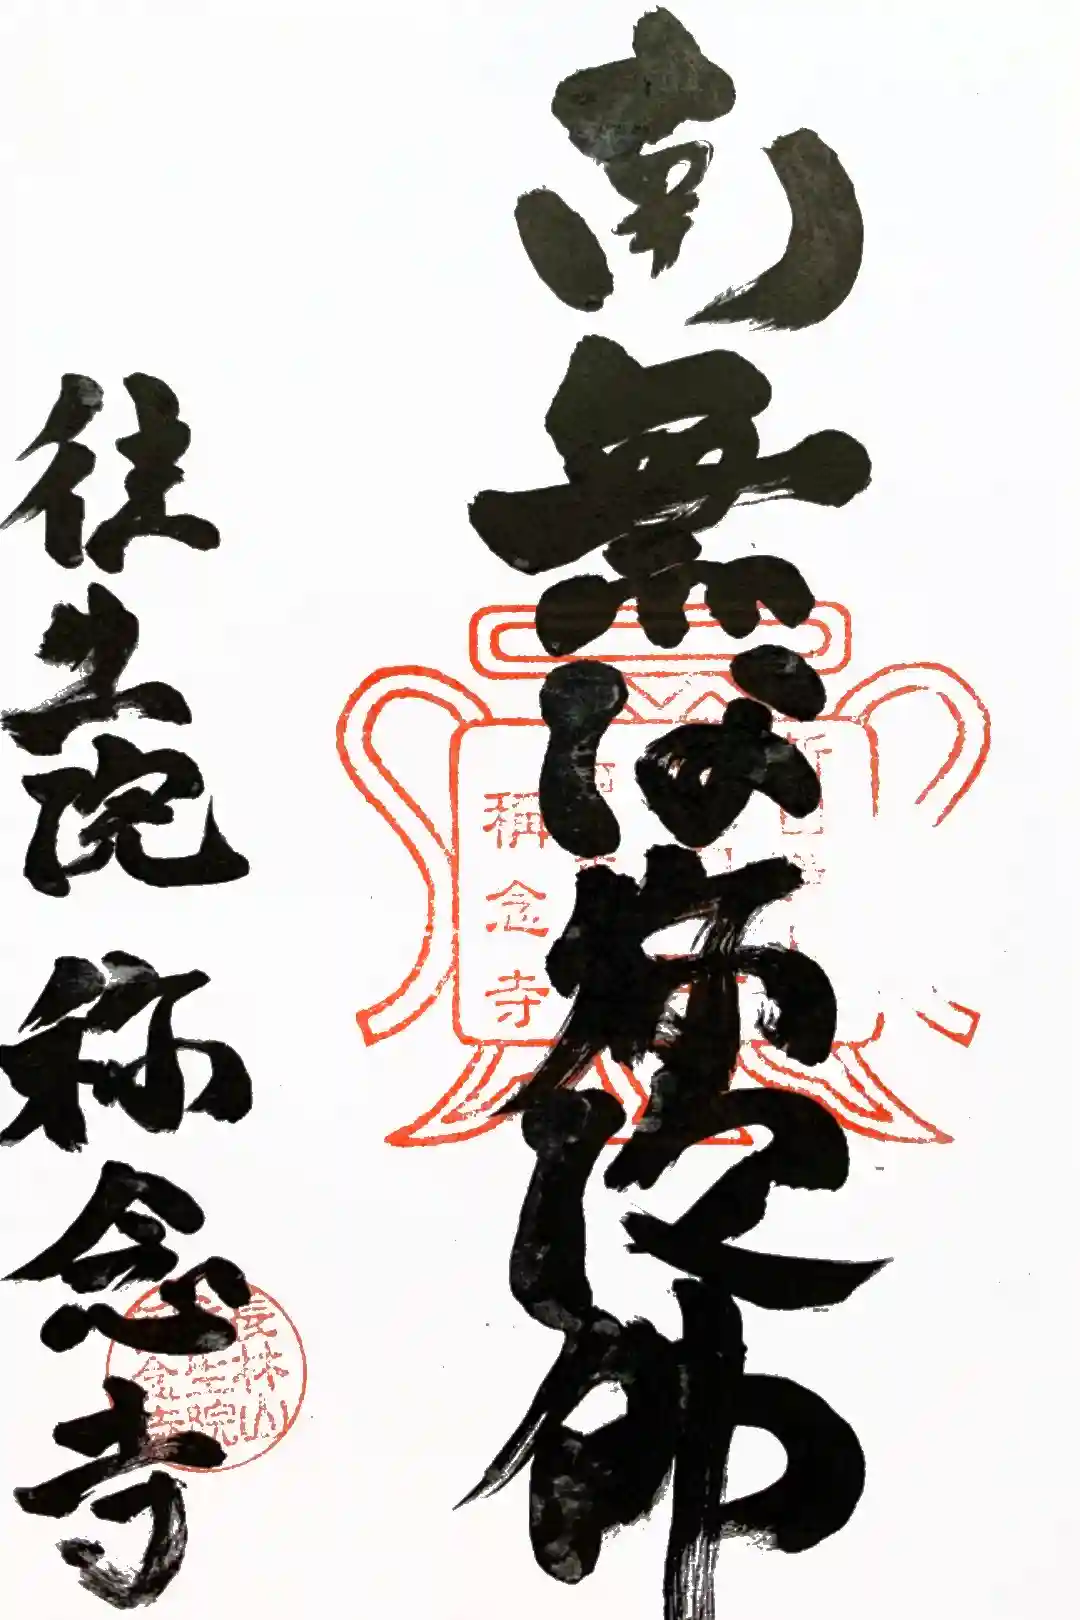 南無阿弥陀佛
往生院 称念寺
稱念寺
長林山
往生院
稱念寺